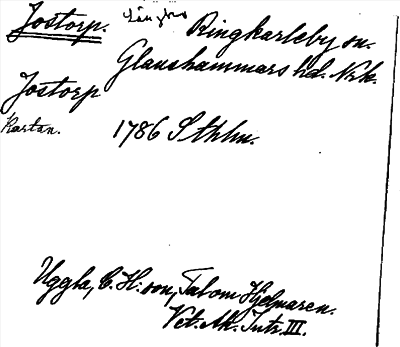 Jostorp. Långbro Ringkarleby sn.
Glanshammars hd. Nrk.
Jostorp
Kartan. 1786 Sthlm.
Uggla, C. H:son, Tal om Hjelmaren.
Vet. Ak. Intr. III.